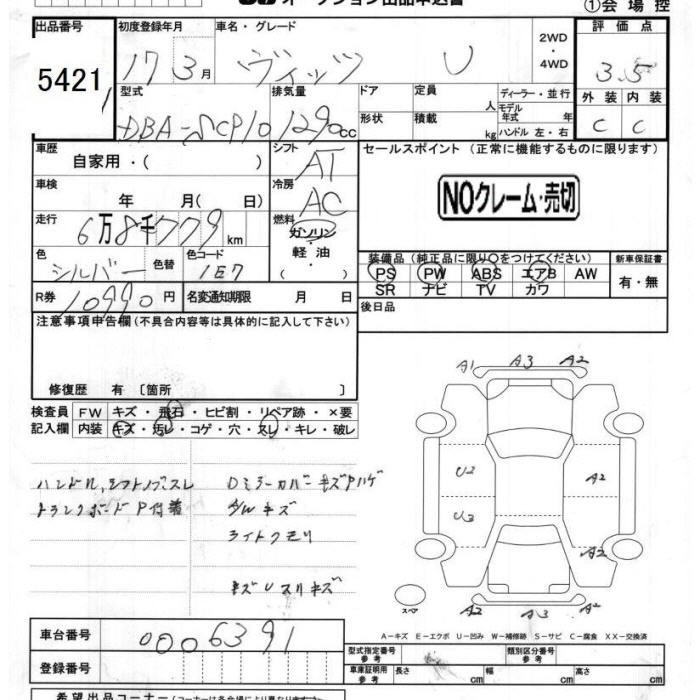 オークション出品申込書
①会場控
出品番号 初度登録年月 車名・グレード 2WD・4WD 評価点
5421 17 3月 ヴィッツ U 3.5
型式 排気量 ドア 定員 人 ディーラー・並行 外装 内装
DBA-SCP10 1290cc 形状 積載 kg モデル年式 年 C C
ハンドル 左・右
車歴 シフト セールスポイント (正常に機能するものに限ります)
自家用・( ) AT
車検 冷房 NOクレーム・売切
年 月( 日) AC
走行 燃料
6万8千779km ガソリン
軽油
色 色替 色コード 装備品 (純正品に限り○をつけてください) 新車保証書
シルバー 1E7 PS PW ABS エアB AW 有・無
SR ナビ TV カワ
R券 10990円 名変通知期限 月 日 後日品
注意事項申告欄 (不具合内容等は具体的に記入して下さい)
修復歴 有 〔箇所
検査員 FW キズ・飛石・ヒビ割・リペア跡・×要
記入欄 内装 キズ・汚レ・コゲ・穴・スレ・キレ・破レ
ハンドル、シフトノブスレ
トランクボードP付着
DミラーカバーキズPハゲ
AWキズ
ライトクモリ
キズUスリキズ
A1 A3 A2
U2 A2
U3
A2
スペ A2 A3 A2
A-キズ E-エクボ U-凹み W-補修跡 S-サビ C-腐食 XX-交換済
車台番号 0006391
登録番号
型式指定番号 参考 類別区分番号 参考
車庫証明用 参考 長さ cm 幅 cm 高さ cm
希望出品コーナー